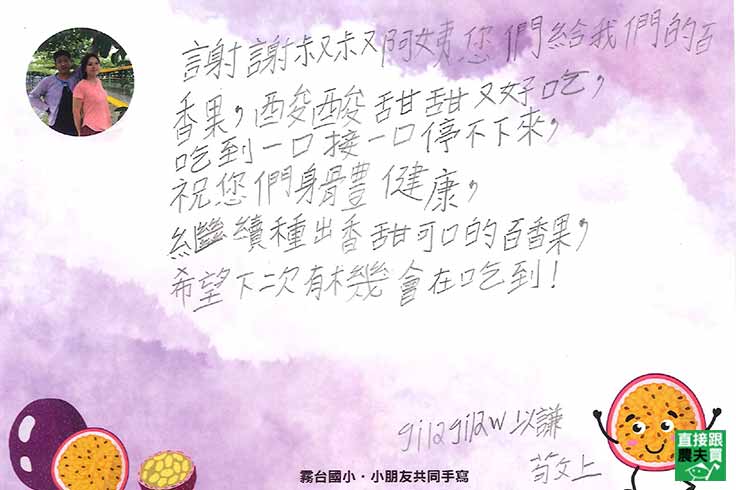 謝謝叔叔阿姨您們給我們的百
香果，酸酸甜甜又好吃，
吃到一口接一口停不下來，
祝您們身體健康，
繼續種出香甜可口的百香果，
希望下次有機會在吃到！
以謙
敬上
霧台國小・小朋友共同手寫
直接跟
農夫買